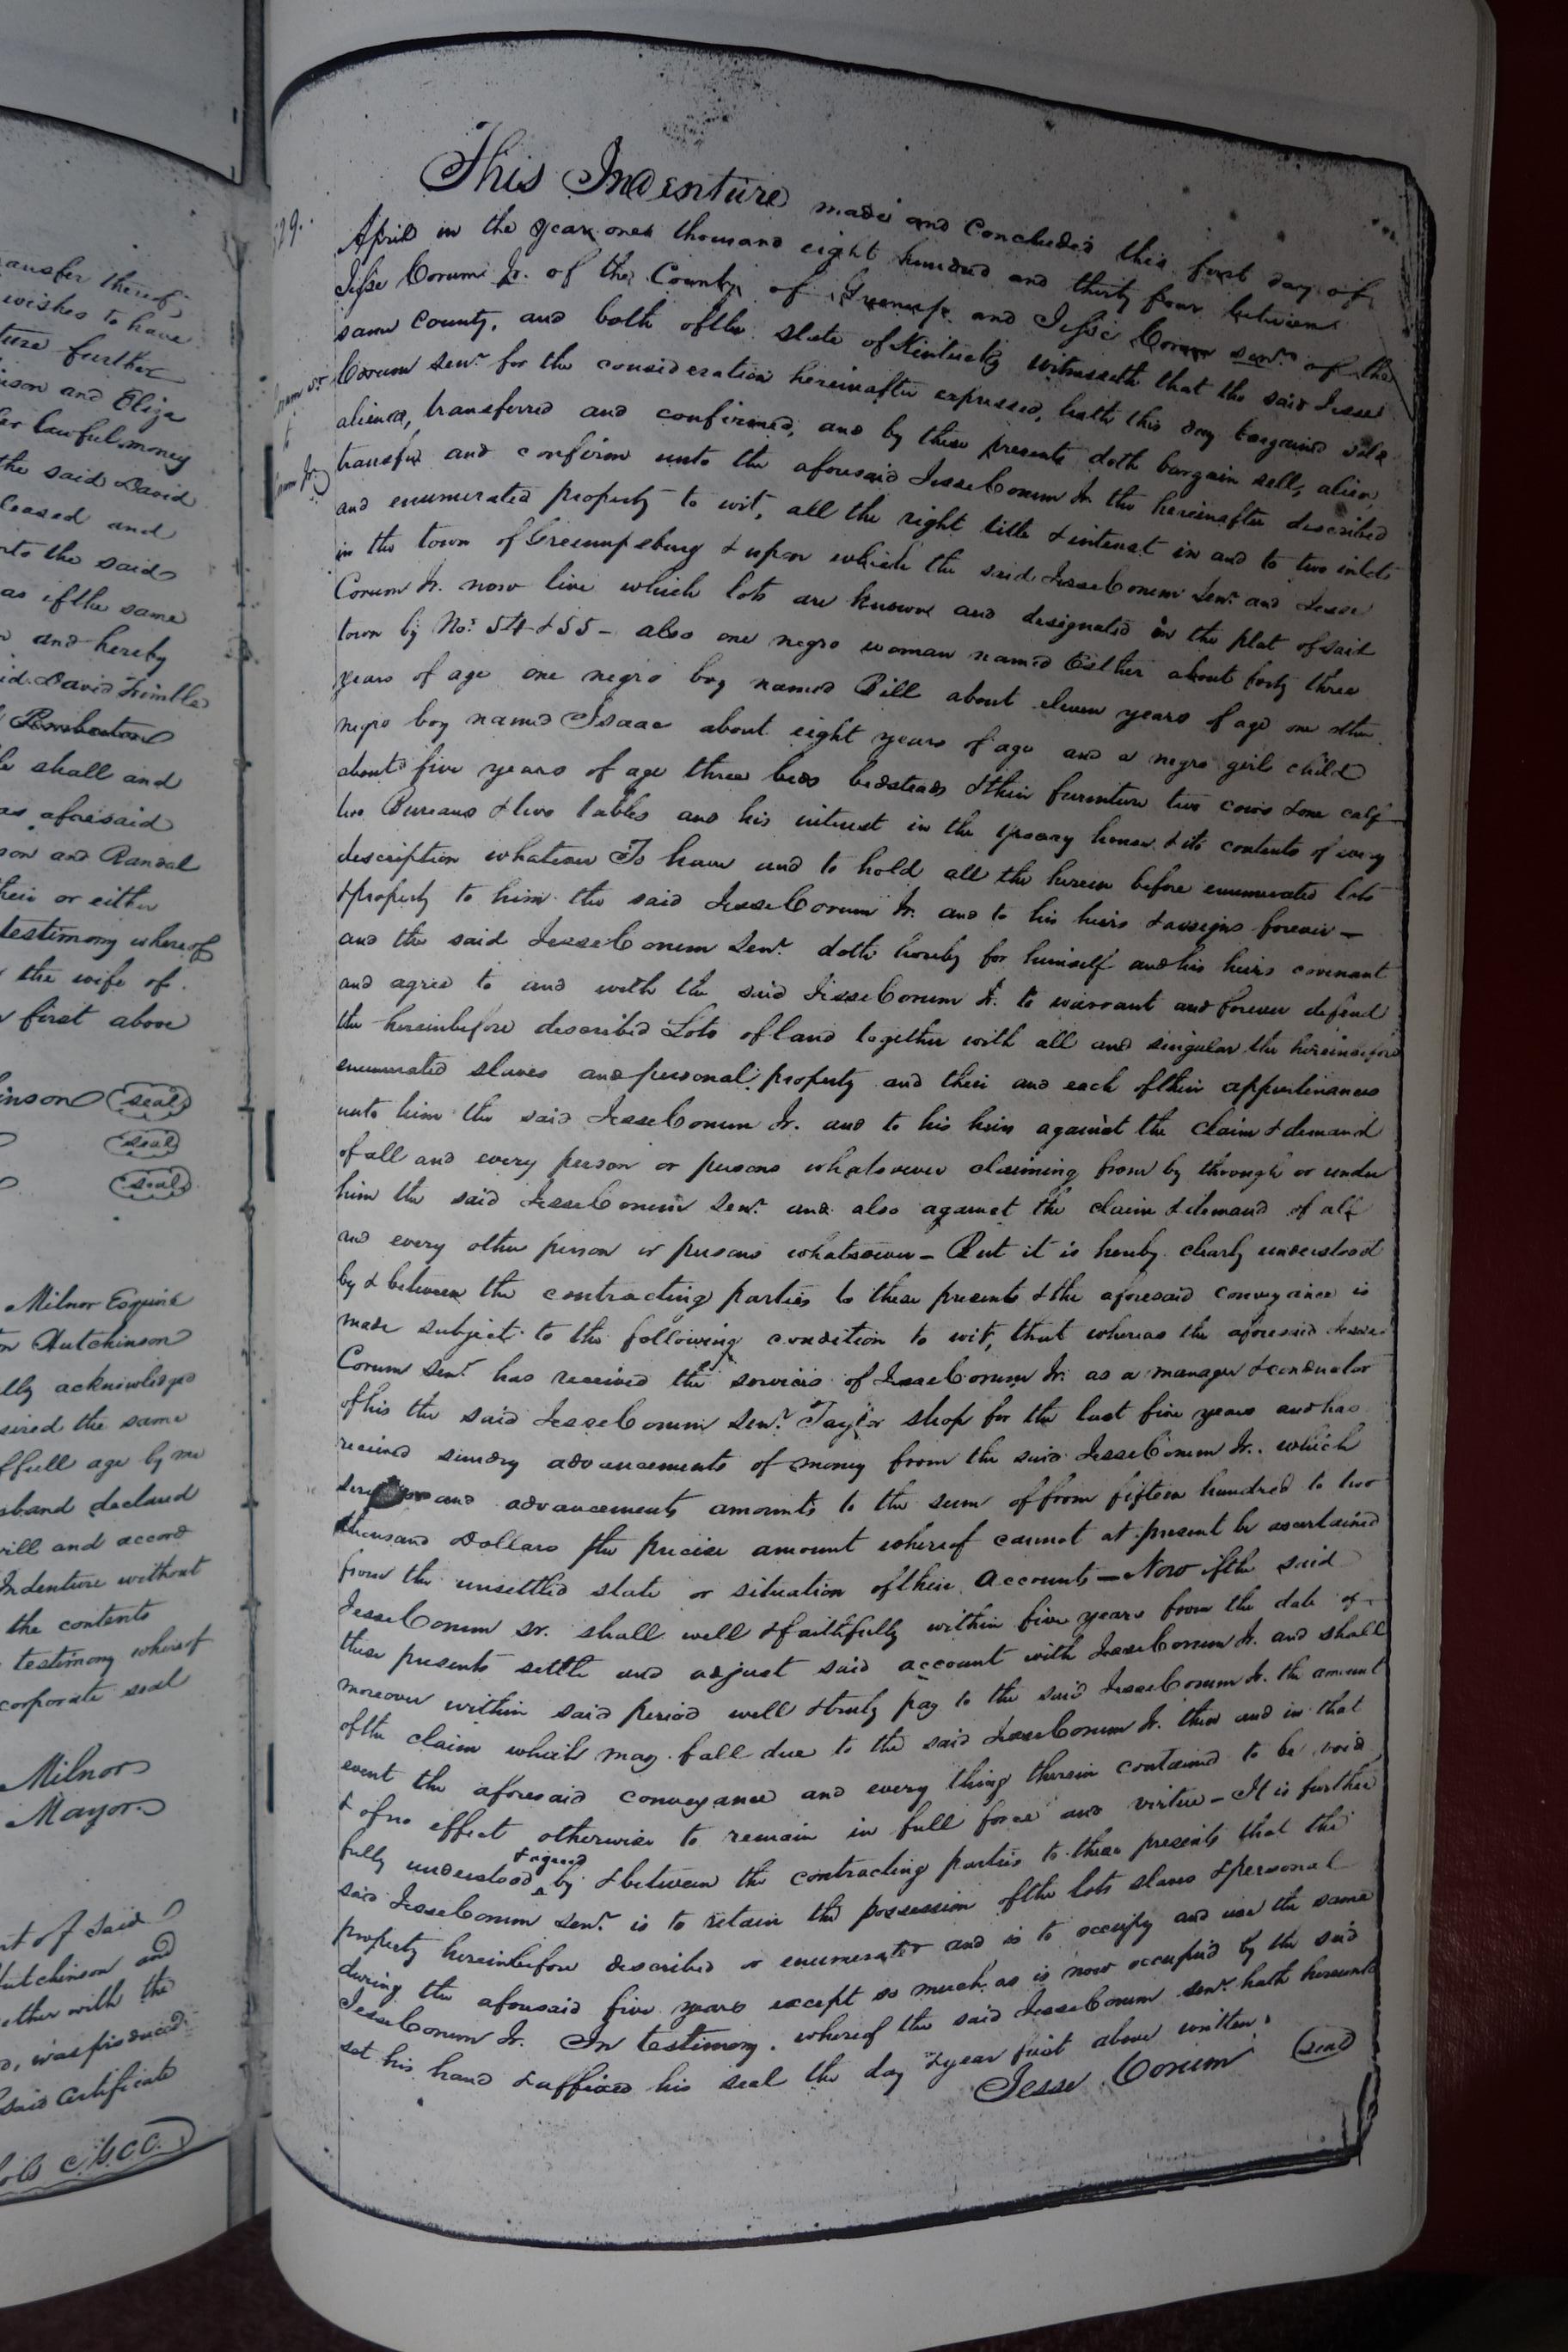 ansfer thereof
wishes to have
ture further
ison and Eliza
er lawful money
the said David
leased and
nto the said
as if the same
and hereby
id David Trimble
Pemberton
shall and
as aforesaid
son and Randal
their or either
testimony whereof
the wife of
first above
inson seal
seal
seal
Milnor Esquire
n Hutchinson
lly acknowledged
sired the same
f full age by me
sband declared
will and accord
Indenture without
the contents
testimony whereof
corporate seal
Milnor
Mayor
nt of said
Hutchinson and
ether with the
d, was produced
said Certificate
C.G.C.C.
This Indenture made and concluded this first day of
April in the year one thousand eight hundred and thirty four between
Jesse Corum Jr. of the County of Greenup and Jesse Corum senr. of the
same County, and both of the state of Kentucky witnesseth that the said Jesse
Corum senr. for the consideration hereinafter expressed, hath this day bargained sold
aliened, transferred and confirmed, and by these presents doth bargain sell, alien,
transfer and confirm unto the aforesaid Jesse Corum Jr. the hereinafter described
and enumerated property to wit, all the right title & interest in and to two inlots
in the town of Greenupsburg & upon which the said Jesse Corum Senr. and Jesse
Corum Jr. now live which lots are known and designated in the plat of said
town by Nos. 54 & 55 - also one negro woman named Esther about forty three
years of age one negro boy named Bill about eleven years of age one other
negro boy named Isaac about eight years of age and a negro girl child
about five years of age three beds bedsteads & their furniture two cows & one calf
two Bureaus & two tables and his interest in the grocery house & its contents of every
description whatever To have and to hold all the herein before enumerated lots
& property to him the said Jesse Corum Jr. and to his heirs & assigns forever -
and the said Jesse Corum Senr. doth hereby for himself and his heirs covenant
and agree to and with the said Jesse Corum Jr. to warrant and forever defend
the hereinbefore described Lots of land together with all and singular the hereinbefore
enumerated slaves and personal property and their and each of their appurtenances
unto him the said Jesse Corum Jr. and to his heirs against the claim & demand
of all and every person or persons whatsoever claiming from by through or under
him the said Jesse Corum Senr. and also against the claim & demand of all
and every other person or persons whatsoever - But it is hereby clearly understood
by & between the contracting parties to these presents & the aforesaid conveyance is
made subject to the following condition to wit, that whereas the aforesaid Jesse
Corum Senr. has received the services of Jesse Corum Jr. as a manager & conductor
of his the said Jesse Corum Senr. Taylor shop for the last five years and has
received sundry advancements of money from the said Jesse Corum Jr. which
and advancements amounts to the sum of from fifteen hundred to two
thousand Dollars the precise amount whereof cannot at present be ascertained
from the unsettled state or situation of their accounts - Now if the said
Jesse Corum sr. shall well & faithfully within five years from the date of
these presents settle and adjust said account with Jesse Corum Jr. and shall
moreover within said period well & truly pay to the said Jesse Corum Jr. the amount
of the claim which may fall due to the said Jesse Corum Jr. then and in that
event the aforesaid conveyance and every thing therein contained to be void
& of no effect otherwise to remain in full force and virtue - It is further
fully understood & agreed by & between the contracting parties to these presents that the
said Jesse Corum Senr. is to retain the possession of the lots slaves & personal
property hereinbefore described or enumerated and is to occupy and use the same
during the aforesaid five years except so much as is now occupied by the said
Jesse Corum Jr. In testimony whereof the said Jesse Corum senr. hath hereunto
set his hand & affixed his seal the day & year first above written.
Jesse Corum seal